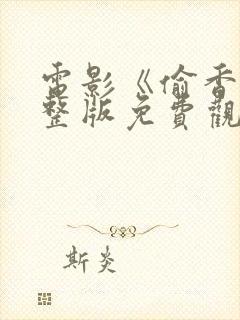 電影《偷香
整版免費觀
斯炎